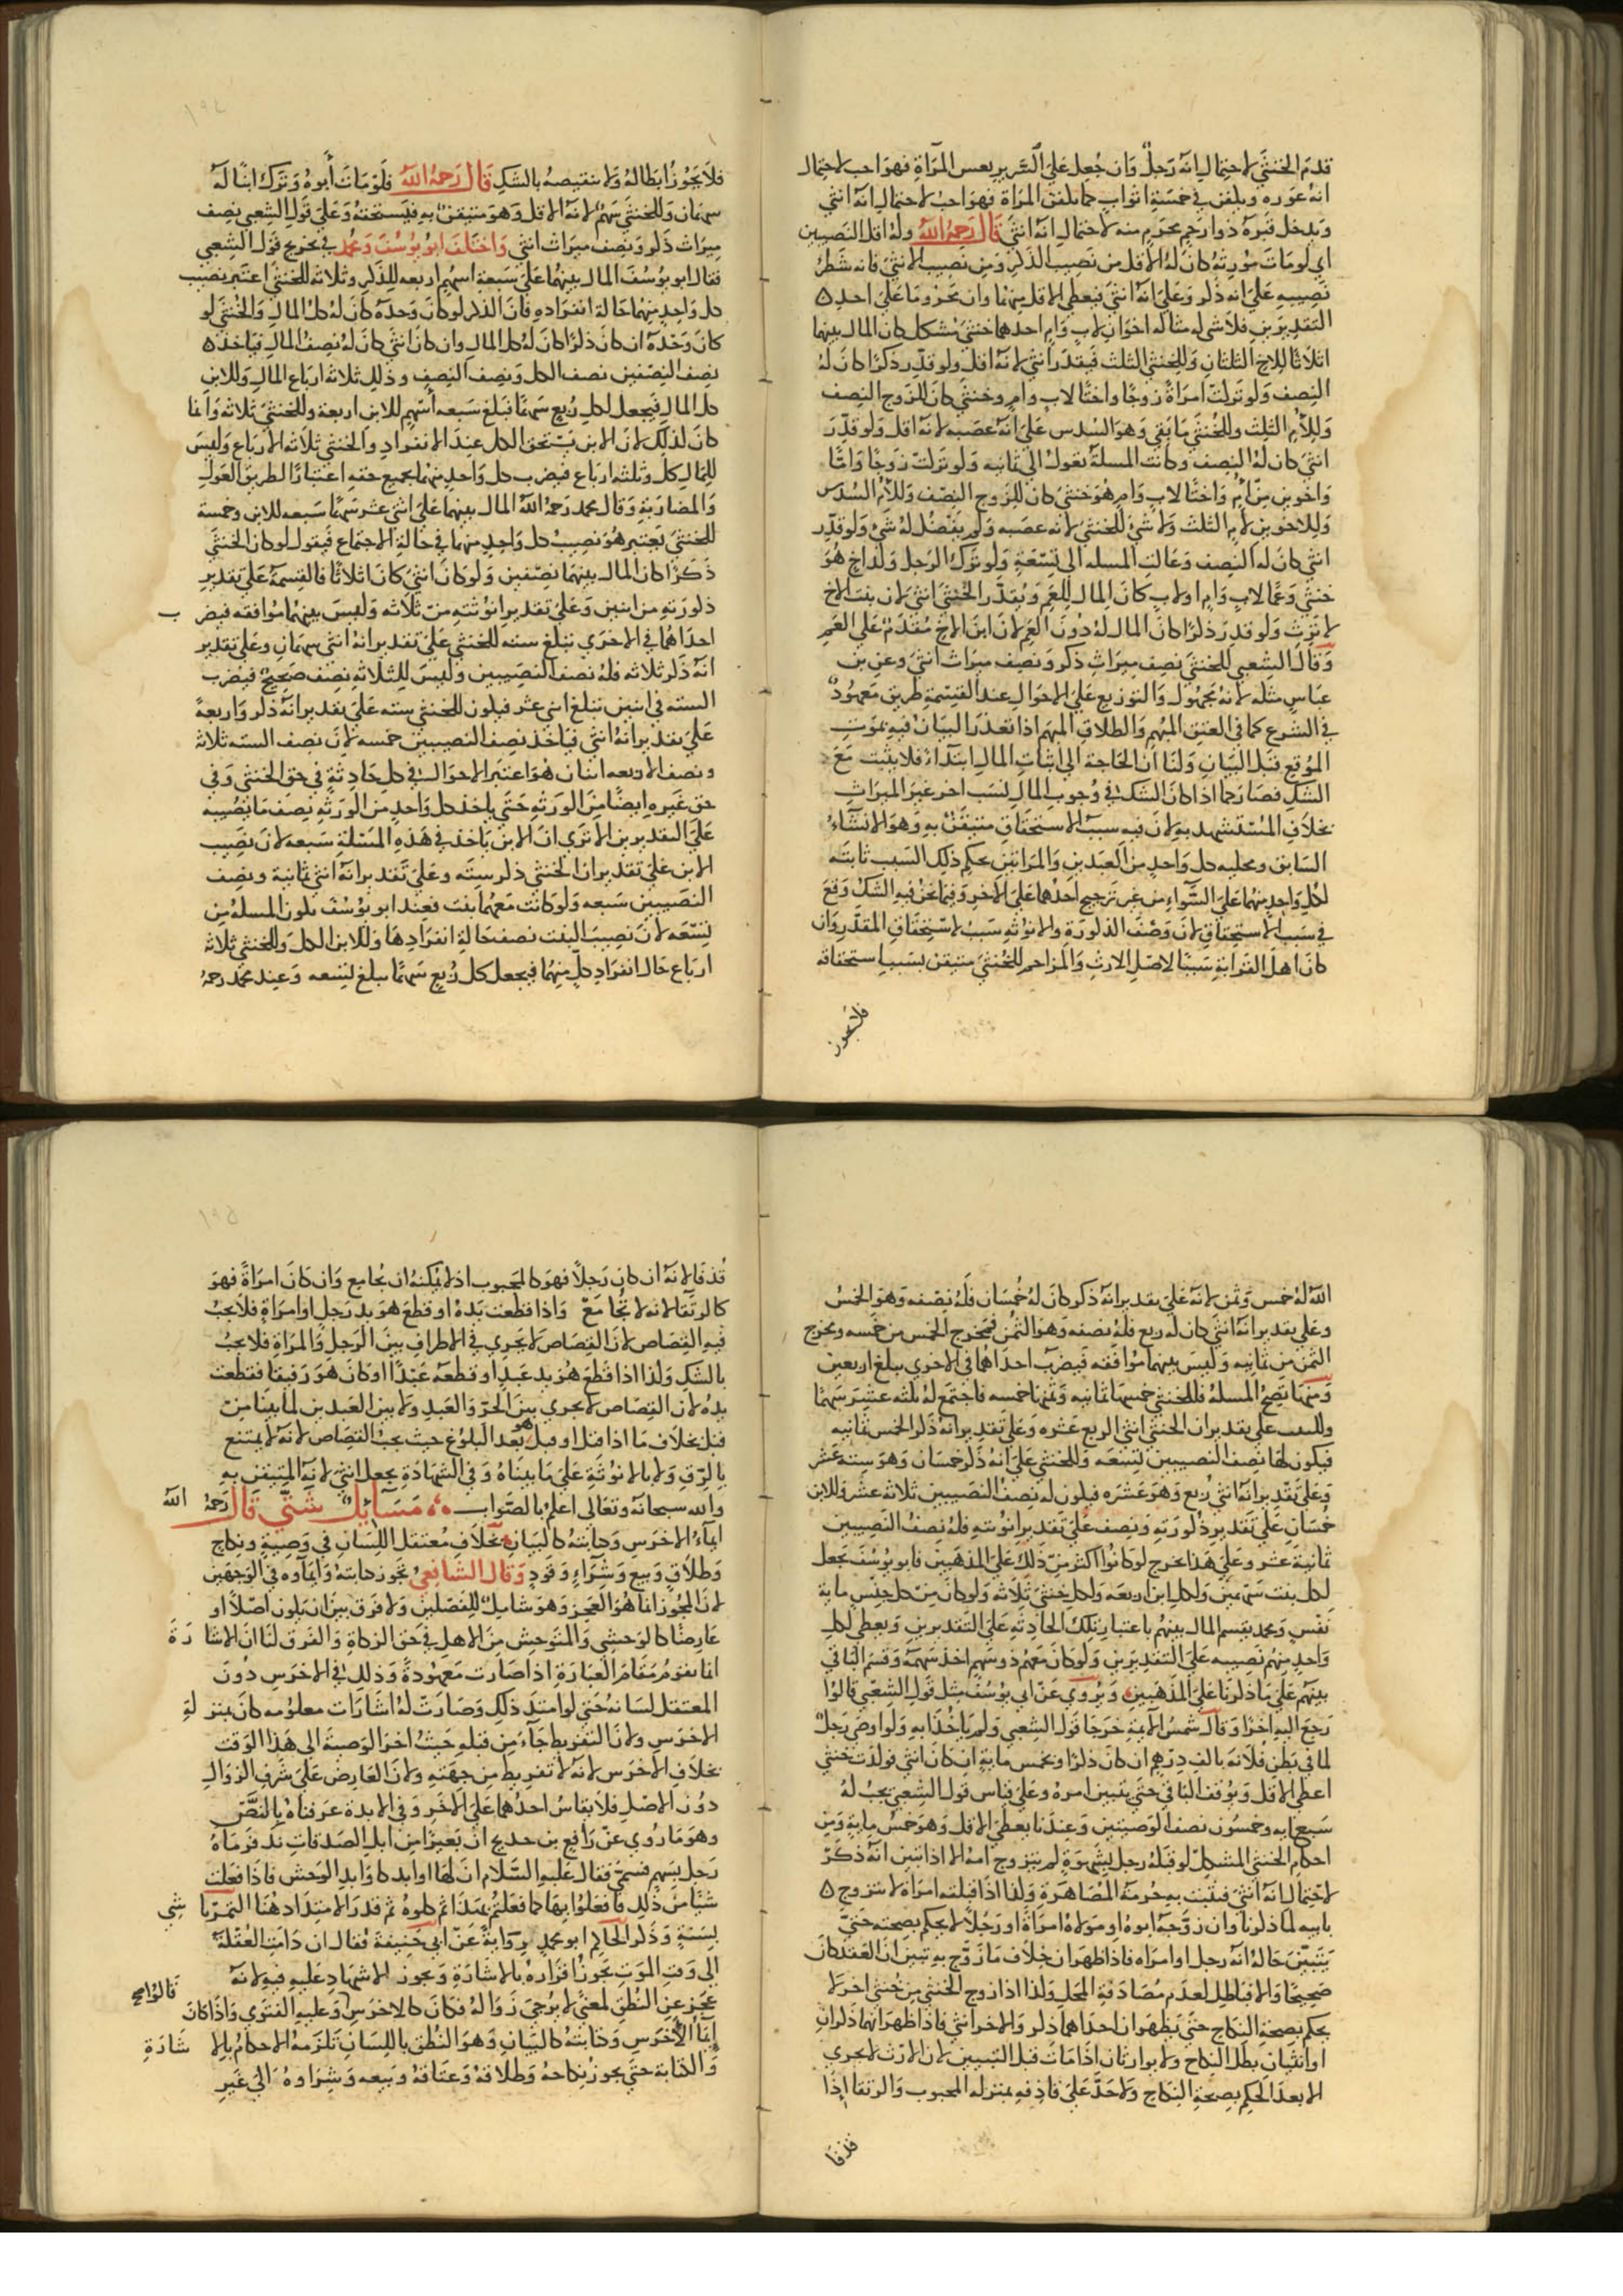 قدم الخنثى لاحتمال انه رجل وان جعل على السرير نعش المرآة فهو احب لاحتمال
انه عوره ويكفن في خمسة اثواب كما تكفن المرآة فهو احب لاحتمال انه انثى
ويدخل قبره ذوا رحم محرم منه لاحتمال انه انثى قال رحمه الله وله اقل النصيبين
اي لو مات مورثه كان له الاقل من نصيب الذكر ومن نصيب الانثى فانه ينظر
نصيبه على انه ذكر وعلى انه انثى فيعطى الاقل منهما وان كان محروما على احد
التقديرين فلا شى له مثاله اخوان لاب وام احدهما خنثى مشكل كان المال بينهما
اثلاثا للاخ الثلثان وللخنثى الثلث فيقدر انثى لانه اقل ولو قدر ذكرا كان له
النصف ولو تركت امرأة زوجا واختا لاب وام وخنثى كان للزوج النصف
وللام الثلث وللخنثى ما بقى وهو السدس على انه عصبه لانه اقل ولو قدر
انثى كان له النصف وكانت المسلة تعول الى ثمانيه ولو تركت زوجا واما
واخوين من ام واختا لاب وام هو خنثى كان للزوج النصف وللام السدس
وللاخوين لام الثلث ولا شئ للخنثى لانه عصبه ولم يفضل له شئ ولو قدر
انثى كان له النصف وعالت المسله الى تسعة ولو ترك الرجل ولد اخ هو
خنثى وعما لاب وام او لاب كان المال للعم ويقدر الخنثى انثى لان بنت الاخ
لا ترث ولو قدر ذكرا كان المال له دون العم لان ابن الاخ مقدم على العم
وقال الشعبي للخنثى نصف ميراث ذكر ونصف ميراث انثى وعن بن
عباس مثله لانه مجهول والتوزيع على الاحوال عند القسمة طريق معهود
في الشرع كما في العتق المبهم والطلاق المبهم اذا تعذر البيان فيه بموت
الموقع قبل البيان ولنا ان الحاجة الى اثبات المال ابتدآء فلا يثبت مع
الشك فصار كما اذا كان الشك في وجوب المال لسبب اخر غير الميراث
بخلاف المستشهد به لان فيه سبب الاستحقاق متيقن به وهو الانشآء
السابق ومحليه كل واحد من العبدين والمرآتين بحكم ذلك السبب ثابته
لكل واحد منهما على السوآء من غير ترجيح احدهما على الاخر وفيما نحن فيه الشك وقع
في سبب الاستحقاق لان وصف الذكورة والانوثه سبب لاستحقاق المقدر وان
كان اهل القرابة سببا لاصل الارث والمزاحم للخنثى متيقن بسبب استحقاقه
فلا يجوز
فلا يجوز ابطاله ولا تنقيصه بالشك قال رحمه الله فلو مات أبوه وترك ابنا له
سهمان وللخنثى سهم لانه الاقل وهو متيقن به فيستحقه وعلى قول الشعبي نصف
ميراث ذكر ونصف ميراث انثى واختلف ابو يوسف ومحمد في تخريج قول الشعبي
فقال ابو يوسف المال بينهما على سبعة اسهم اربعه للذكر وثلاثه للخنثى اعتبر نصيب
كل واحد منهما حالة انفراده فان الذكر لو كان وحده كان له كل المال والخنثى لو
كان وحده ان كان ذكرا كان له كل المال وان كان انثى كان له نصف المال فياخذ
نصف النصفين نصف الكل ونصف النصف وذلك ثلاثه ارباع المال وللابن
كل المال فيجعل لكل ربع سهما فبلغ سبعه أسهم للابن اربعة وللخنثى ثلاثه وانما
كان لذلك لان الابن يستحق الكل عند الانفراد والخنثى ثلاثه الارباع وليس
للمال كل وثلثه ارباع فيضرب كل واحد منهما بجميع حقه اعتبارا لطريق العول
والمضاربة وقال محمد رحمه الله المال بينهما على اثنى عشر سهما سبعه للابن وخمسة
للخنثى يعتبر هو نصيب كل واحد منهما في حالة الاجتماع فيقول لو كان الخنثى
ذكرا كان المال بينهما نصفين ولو كان انثى كان اثلاثا فالقسمة على تقدير
ذكورته من اثنين وعلى تقدير انوثته من ثلاثه وليس بينهما موافقه فيضر ب
احداهما في الاخرى تبلغ سته للخنثى على تقدير انه انثى سهمان وعلى تقدير
انه ذكر ثلاثه فله نصف النصيبين وليس للثلاثه نصف صحيح فيضرب
السته في اثنين تبلغ اثنى عشر فيكون للخنثى سته على تقدير انه ذكر واربعة
على تقدير انه انثى فياخذ نصف النصيبين خمسه لان نصف السته ثلاثه
ونصف الاربعه اثنان هو اعتبر الاحوال في كل حادثة في حق الخنثى وفي
حق غيره ايضا من الورثه حتى ياخذ كل واحد من الورثه نصف ما نصيبه
على التقديرين الا ترى ان الابن ياخذ في هذه المسلة سبعه لان نصيب
الابن على تقدير ان الخنثى ذكر سته وعلى تقدير انه انثى ثمانية ونصف
النصيبين سبعه ولو كانت معهما بنت فعند ابو يوسف تكون المسله من
تسعه لان نصيب البنت نصف حالة انفرادها وللابن الكل وللخنثى ثلاثه
ارباع حال انفراد كل منهما فيجعل كل ربع سهما تبلغ لتسعه وعند محمد رحمه
الله له خمس وثمن لانه على تقدير انه ذكر كان له خمسان فله نصفه وهو الخمس
وعلى تقدير انه انثى كان له ربع فله نصفه وهو الثمن فمخرج الخمس من خمسه ومخرج
الثمن من ثمانيه وليس بينهما موافقه فيضرب احداهما في الاخرى يبلغ اربعين
ومنها تصح المسلة فللخنثى خمسها ثمانيه وثمنها خمسه فاجتمع له ثلثه عشر سهما
وللبنت على تقدير ان الخنثى انثى الربع عشره وعلى تقدير انه ذكر الخمس ثمانيه
فيكون لها نصف النصيبين لتسعه وللخنثى على انه ذكر خمسان وهو سته عشر
وعلى تقدير انه انثى ربع وهو عشره فيكون له نصف النصيبين ثلاثه عشر وللابن
خمسان على تقدير ذكورته ونصف على تقدير انوثته فله نصف النصيبين
ثمانية عشر وعلى هذا يخرج لو كانوا اكثر من ذلك على المذهبين فابو يوسف يجعل
لكل بنت سهمين ولكل ابن اربعه ولكل خنثى ثلاثه ولو كان من كل جنس ماية
نفس ومحمد يقسم المال بينهم باعتبار تلك الحادثه على التقديرين ويعطى لكل
واحد منهم نصيبه على التقديرين ولو كان معهم ذو سهم اخذ سهمه وقسم الباقي
بينهم على ما ذكرنا على المذهبين ويروى عن ابي يوسف مثل قول الشعبي قالوا
رجع اليه اخرا وقال شمس الايمة خرجا قول الشعبي ولم ياخذا به ولو اوصى رجل
لما في بطن فلانه بالف درهم ان كان ذكرا وبخمس ماية ان كان انثى فولدت خنثى
اعطى الاقل ويوقف الباقي حتى يتبين امره وعلى قياس قول الشعبي يجب له
سبعمايه وخمسون نصف الوصيتين وعندنا يعطى الاقل وهو خمس ماية ومن
احكام الخنثى المشكل لو قبله رجل بشهوة لم يتزوج امه الا اذا تبين انه ذكر
لاحتمال انه انثى فيثبت به حرمة المصاهرة وكذا اذا قبلته امرأة لا تتزوج
بابيه لما ذكرنا وان زوجه ابوه او مولاه امرأة او رجلا لا يحكم بصحته حتى
يتبين حاله انه رجل او امراه فاذا ظهر ان خلاف ما زوج به تبين ان العقد كان
صحيحا والا فباطل لعدم مصادفة المحل وكذا اذا زوج الخنثى من خنثى اخر لا
يحكم بصحة النكاح حتى يظهر ان احداهما ذكر والاخر انثى فاذا ظهر انهما ذكران
او انثيان بطل النكاح ولا يوارثان اذا ماتا قبل التبيين لان الارث لا يجري
الا بعد الحكم بصحة النكاح ولا حد على قاذفه بمنزلة المجبوب والرتقا اذا
قذفا
قذفا لانه ان كان رجلا فهو كالمجبوب اذ لا يمكنه ان يجامع وان كان امرأة فهو
كالرتقا لانه لا تجامع واذا قطعت يده او قطع هو يد رجل او امرأة فلا يجب
فيه القصاص لان القصاص لا يجري في الاطراف بين الرجل والمرأة فلا يجب
بالشك ولذا اذا قطع هو يد عبد او قطعه عبدا او كان هو رقيقا فقطعت
يده لان القصاص لا يجري بين الحر والعبد ولا بين العبدين لما بينا من
قبل بخلاف ما اذا قتل او قتل هو بعد البلوغ حيث يجب القصاص لانه لا يمتنع
بالرق ولا بالانوثة على ما بيناه وفي الشهادة يجعل انثى لانه المتيقن به
والله سبحانه وتعالى اعلم بالصواب مسآئل شتى قال رحمه الله
ايمآء الاخرس وكتابته كالبيان بخلاف معتقل اللسان في وصية ونكاح
وطلاق وبيع وشرآء وقود وقال الشافعي تجوز كتابته وايمآوه في الوجهين
لان المجوز انما هو العجز وهو شامل للفصلين ولا فرق بين ان يكون اصلا او
عارضا كالوحشي والمتوحش من الاهل في حق الزكاة والفرق لنا ان الاشا رة
انما تقوم مقام العبارة اذا صارت معهودة وذلك في الاخرس دون
المعتقل لسانه حتى لو امتد ذلك وصارت له اشارات معلومه كان بمنز لة
الاخرس ولان التفريط جآء من قبله حيث اخر الوصية الى هذا الوقت
بخلاف الاخرس لانه لا تفريط من جهته ولان العارض على شرف الزوال
دون الاصل فلا يقاس احدهما على الاخر وفي الابدة عرفناه بالنص
وهو ما روي عن رافع بن خديج ان بعيرا من ابل الصدقات ند فرماه
رجل بسهم فسمى فقال عليه السلام ان لها اوابد كاوابد الوحش فاذا فعلت
شيا من ذلك فافعلوا بها كما فعلتم بهذا ثم كلوه ثم قدر الامتداد هنا التمرتا شي
بسنة وذكر الحاكم ابو محمد رواية عن ابي حنيفة فقال ان دامت العقلة
الى وقت الموت يجوز اقراره بالاشارة ويجوز الاشهاد عليه فيه لانه
عجز عن النطق لمعنى لا يرجى زواله فكان كالاخرس قالوا وعليه الفتوى واذا كان
ايمآ الأخرس وكتابته كالبيان وهو النطق باللسان تلزمه الاحكام بالا شارة
والكتابة حتى يجوز نكاحه وطلاقه وعتاقه وبيعه وشراوه الى غير